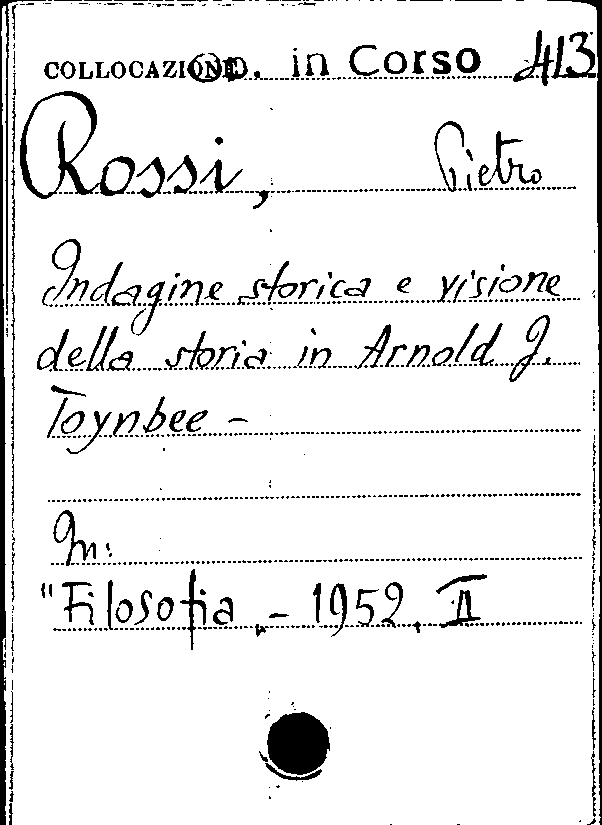 COLLOCAZIONE. in Corso 413
Rossi, Pietro
Indagine storica e visione
della storia in Arnold J.
Toynbee -
In:
"Filosofia„ - 1952, II